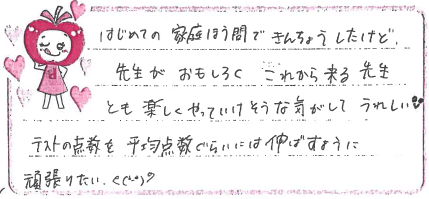 はじめての 家庭ほう問で きんちょうしたけど、
先生が おもしろく これから来る 先生
とも 楽しくやっていけそうな気がして うれしい
テストの点数を 平均点数ぐらいには伸ばすように
頑張りたい。